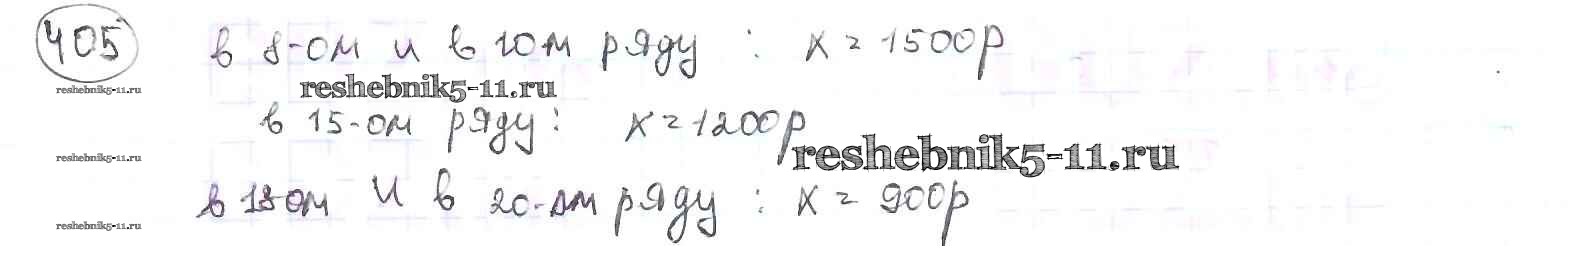 405 в 8-ом и в 10м ряду : x = 1500р
reshebnik5-11.ru reshebnik5-11.ru
в 15-ом ряду : x = 1200р
reshebnik5-11.ru reshebnik5-11.ru
в 18-ом и в 20-ом ряду : x = 900р
reshebnik5-11.ru